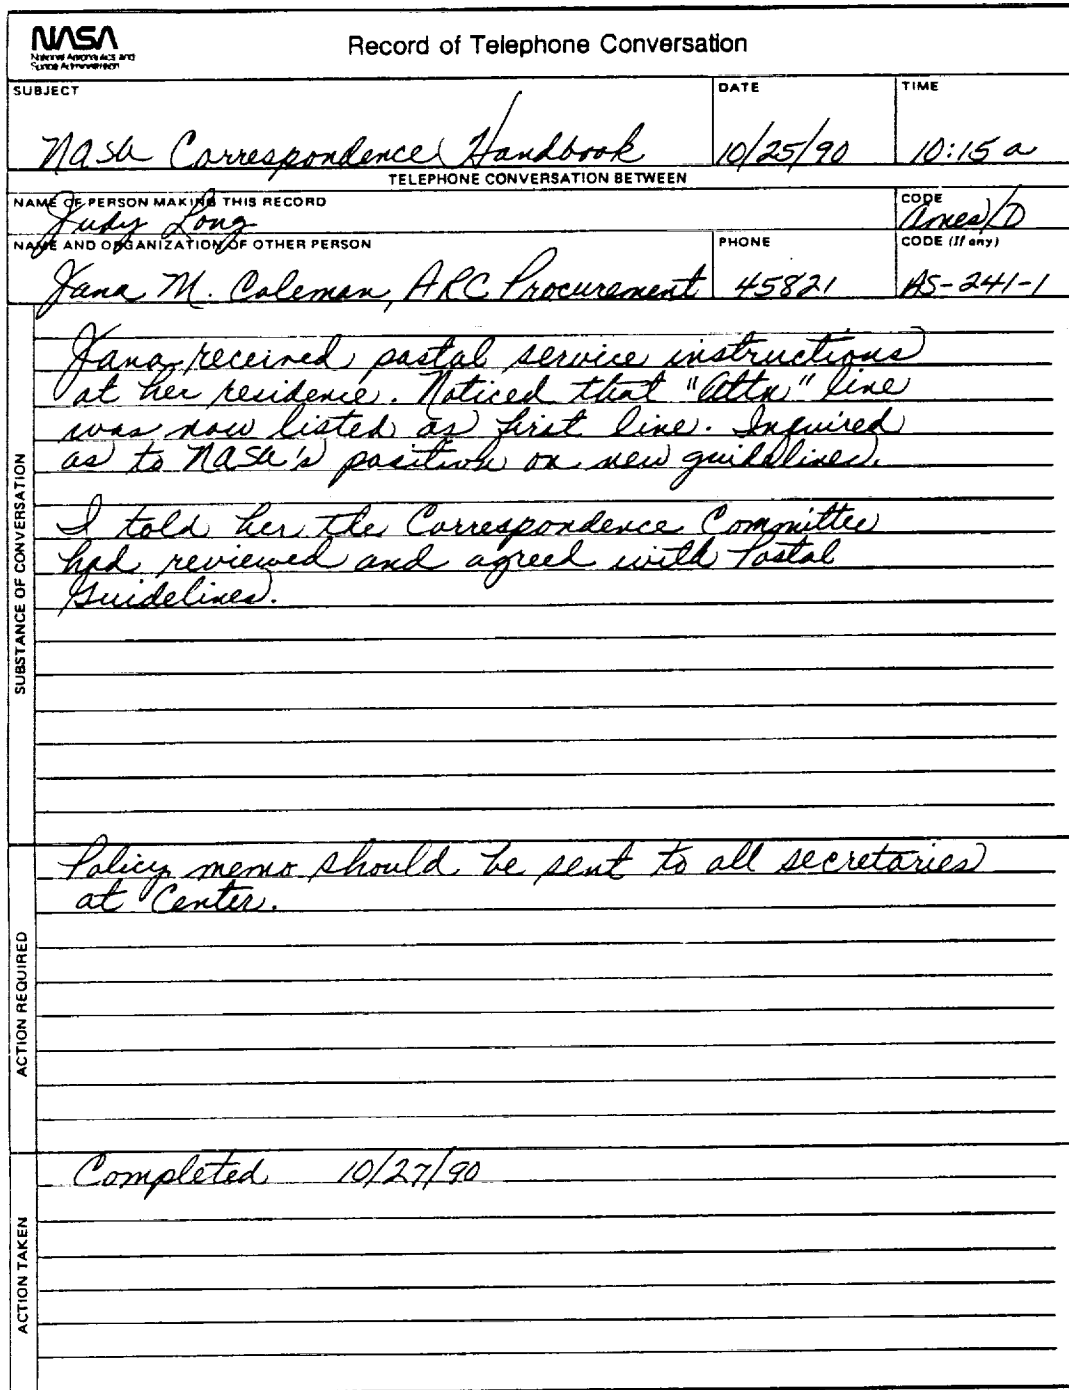 NASA
National Aeronautics and
Space Administration
Record of Telephone Conversation
SUBJECT
DATE
TIME
Nasa Correspondence Handbook
10/25/90
10:15 a
TELEPHONE CONVERSATION BETWEEN
NAME OF PERSON MAKING THIS RECORD
CODE
Judy Long
Ames/D
NAME AND ORGANIZATION OF OTHER PERSON
PHONE
CODE (If any)
Jana M. Coleman, ARC Procurement
45821
AS-241-1
SUBSTANCE OF CONVERSATION
Jana received postal service instructions
at her residence. Noticed that "Attn" line
was now listed as first line. Inquired
as to NASA's position on new guidelines.
I told her the Correspondence Committee
had reviewed and agreed with Postal
Guidelines.
ACTION REQUIRED
Policy memo should be sent to all secretaries
at Center.
ACTION TAKEN
Completed 10/27/90